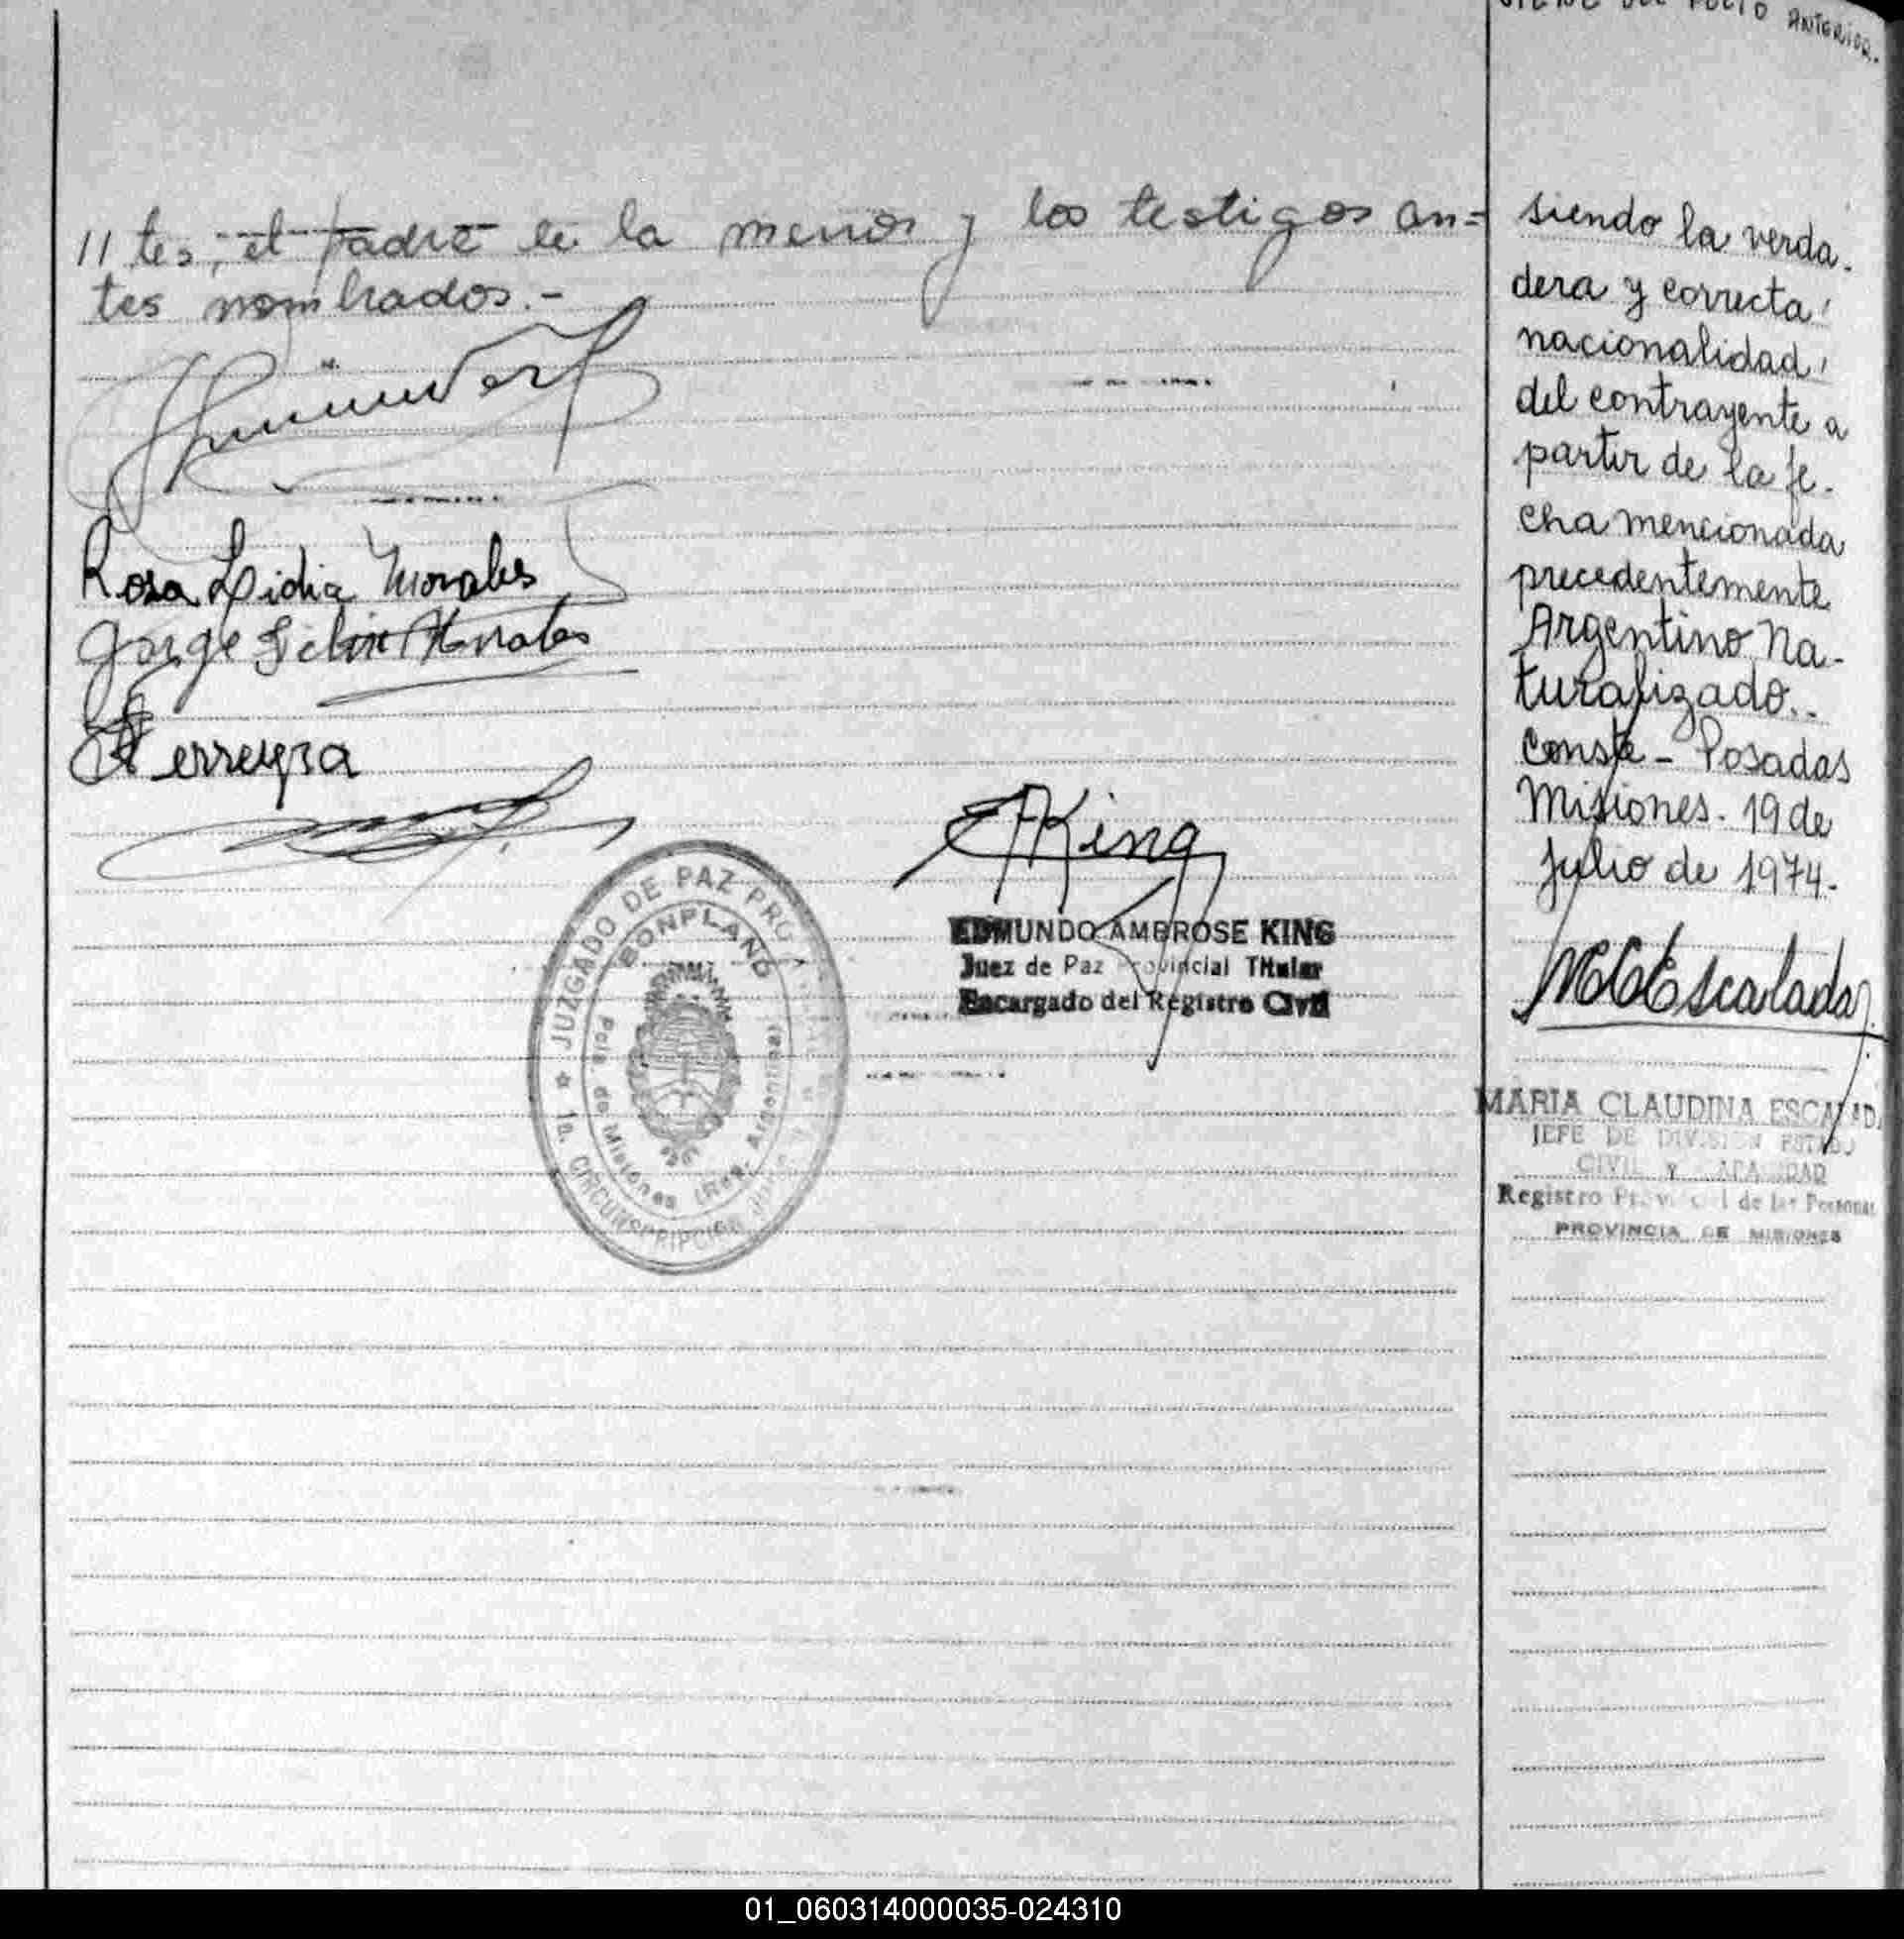 // tes, el padre de la menor y los testigos an=
tes nombrados.-
Rosa Lidia Morales
Jorge Morales
Herreyra
EKing
EDMUNDO AMBROSE KING
Juez de Paz Provincial Titular
Encargado del Registro Civil
JUZGADO DE PAZ
BONPLAND
Pcia de Misiones (Rep. Argentina)
1a. CIRCUNSCRIPCION
VIENE DEL FOLIO ANTERIOR.
siendo la verda-
dera y correcta
nacionalidad
del contrayente a
partir de la fe-
cha mencionada
precedentemente
Argentino Na-
turalizado.-
Conste - Posadas
Misiones. 19 de
Julio de 1974-
MCEscalada
MARIA CLAUDINA ESCALADA
JEFE DE DIVISION ESTADO
CIVIL Y CAPACIDAD
Registro Provincial de las Personas
PROVINCIA DE MISIONES
01_060314000035-024310